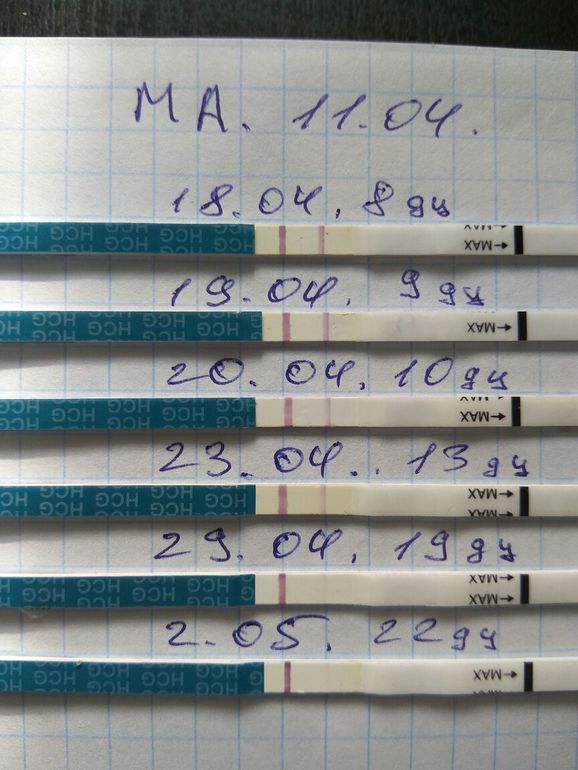 МА. 11.04.
18.04. 8 дц
HCG HCG HCG HCG HCG ←MAX
19.04. 9 дц
HCG HCG HCG HCG HCG ←MAX
20.04. 10 дц
HCG HCG HCG HCG HCG ←MAX
23.04.. 13 дц
HCG HCG HCG HCG HCG ←MAX
29.04. 19 дц
HCG HCG HCG HCG HCG ←MAX
2.05. 22 дц
HCG HCG HCG HCG HCG ←MAX